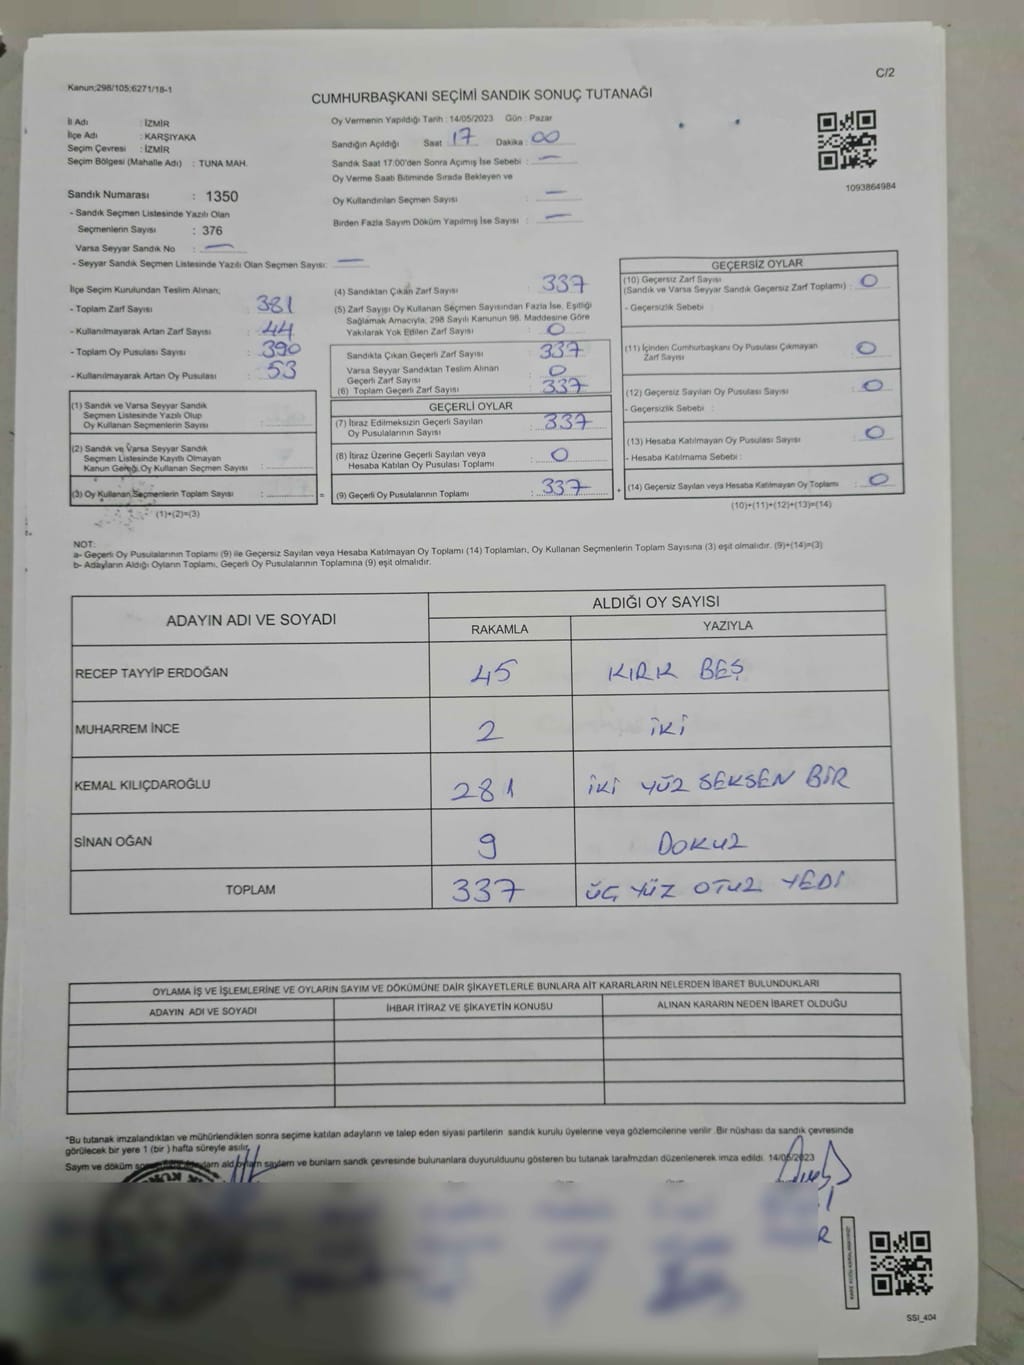 C/2
Kanun;298/105;6271/18-1
CUMHURBAŞKANI SEÇİMİ SANDIK SONUÇ TUTANAĞI
İl Adı : İZMİR
İlçe Adı : KARŞIYAKA
Seçim Çevresi : İZMİR
Seçim Bölgesi (Mahalle Adı) : TUNA MAH.
Sandık Numarası : 1350
- Sandık Seçmen Listesinde Yazılı Olan
Seçmenlerin Sayısı : 376
Varsa Seyyar Sandık No : —
- Seyyar Sandık Seçmen Listesinde Yazılı Olan Seçmen Sayısı: —
Oy Vermenin Yapıldığı Tarih : 14/05/2023 Gün : Pazar
Sandığın Açıldığı Saat : 17 Dakika : 00
Sandık Saat 17:00'den Sonra Açımış İse Sebebi : —
Oy Verme Saati Bitiminde Sırada Bekleyen ve
Oy Kullandırılan Seçmen Sayısı : —
Birden Fazla Sayım Döküm Yapılmış İse Sayısı : —
1093864984
İlçe Seçim Kurulundan Teslim Alınan;
- Toplam Zarf Sayısı : 381
- Kullanılmayarak Artan Zarf Sayısı : 44
- Toplam Oy Pusulası Sayısı : 390
- Kullanılmayarak Artan Oy Pusulası : 53
(1) Sandık ve Varsa Seyyar Sandık
Seçmen Listesinde Yazılı Olup
Oy Kullanan Seçmenlerin Sayısı :
(2) Sandık ve Varsa Seyyar Sandık
Seçmen Listesinde Kayıtlı Olmayan
Kanun Gereği Oy Kullanan Seçmen Sayısı :
(3) Oy Kullanan Seçmenlerin Toplam Sayısı : =
(1)+(2)=(3)
(4) Sandıktan Çıkan Zarf Sayısı : 337
(5) Zarf Sayısı Oy Kullanan Seçmen Sayısından Fazla İse, Eşitliği
Sağlamak Amacıyla, 298 Sayılı Kanunun 98. Maddesine Göre
Yakılarak Yok Edilen Zarf Sayısı : 0
Sandıkta Çıkan Geçerli Zarf Sayısı : 337
Varsa Seyyar Sandıktan Teslim Alınan
Geçerli Zarf Sayısı : 0
(6) Toplam Geçerli Zarf Sayısı : 337
GEÇERLİ OYLAR
(7) İtiraz Edilmeksizin Geçerli Sayılan
Oy Pusulalarının Sayısı : 337
(8) İtiraz Üzerine Geçerli Sayılan veya
Hesaba Katılan Oy Pusulası Toplamı : 0
(9) Geçerli Oy Pusulalarının Toplamı : 337 +
GEÇERSİZ OYLAR
(10) Geçersiz Zarf Sayısı
(Sandık ve Varsa Seyyar Sandık Geçersiz Zarf Toplamı) : 0
- Geçersizlik Sebebi :
(11) İçinden Cumhurbaşkanı Oy Pusulası Çıkmayan
Zarf Sayısı : 0
(12) Geçersiz Sayılan Oy Pusulası Sayısı : 0
- Geçersizlik Sebebi :
(13) Hesaba Katılmayan Oy Pusulası Sayısı : 0
- Hesaba Katılmama Sebebi :
(14) Geçersiz Sayılan veya Hesaba Katılmayan Oy Toplamı : 0
(10)+(11)+(12)+(13)=(14)
NOT:
a- Geçerli Oy Pusulalarının Toplamı (9) ile Geçersiz Sayılan veya Hesaba Katılmayan Oy Toplamı (14) Toplamları, Oy Kullanan Seçmenlerin Toplam Sayısına (3) eşit olmalıdır. (9)+(14)=(3)
b- Adayların Aldığı Oyların Toplamı, Geçerli Oy Pusulalarının Toplamına (9) eşit olmalıdır.
ADAYIN ADI VE SOYADI ALDIĞI OY SAYISI
RAKAMLA YAZIYLA
RECEP TAYYİP ERDOĞAN 45 KIRK BEŞ
MUHARREM İNCE 2 İKİ
KEMAL KILIÇDAROĞLU 281 İKİ YÜZ SEKSEN BİR
SİNAN OĞAN 9 DOKUZ
TOPLAM 337 ÜÇ YÜZ OTUZ YEDİ
OYLAMA İŞ VE İŞLEMLERİNE VE OYLARIN SAYIM VE DÖKÜMÜNE DAİR ŞİKAYETLERLE BUNLARA AİT KARARLARIN NELERDEN İBARET BULUNDUKLARI
ADAYIN ADI VE SOYADI İHBAR İTİRAZ VE ŞİKAYETİN KONUSU ALINAN KARARIN NEDEN İBARET OLDUĞU
*Bu tutanak imzalandıktan ve mühürlendikten sonra seçime katılan adayların ve talep eden siyasi partilerin sandık kurulu üyelerine veya gözlemcilerine verilir. Bir nüshası da sandık çevresinde
görülecek bir yere 1 (bir ) hafta süreyle asılır.
Sayım ve döküm sayıların ve bunların sandık çevresinde bulunanlara duyurulduunu gösteren bu tutanak tarafımızdan düzenlenerek imza edildi. 14/05/2023
SSI_404